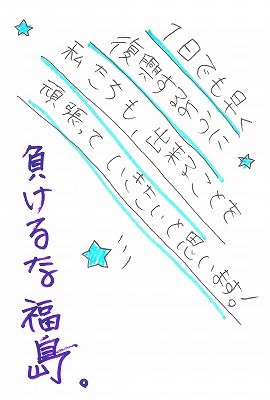 1日でも早く
復興するように
私たちも、出来ることを
頑張っていきたいと思います!
負けるな福島。